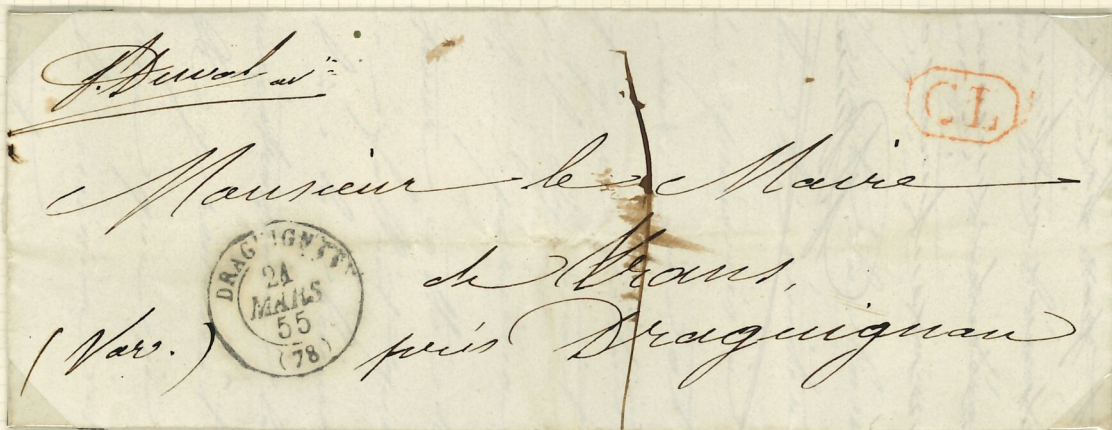 J. Duval av.
CL
Monsieur le Maire
de Trans,
(Var.) près Draguignan
DRAGUIGNAN
21
MARS
55
(78)